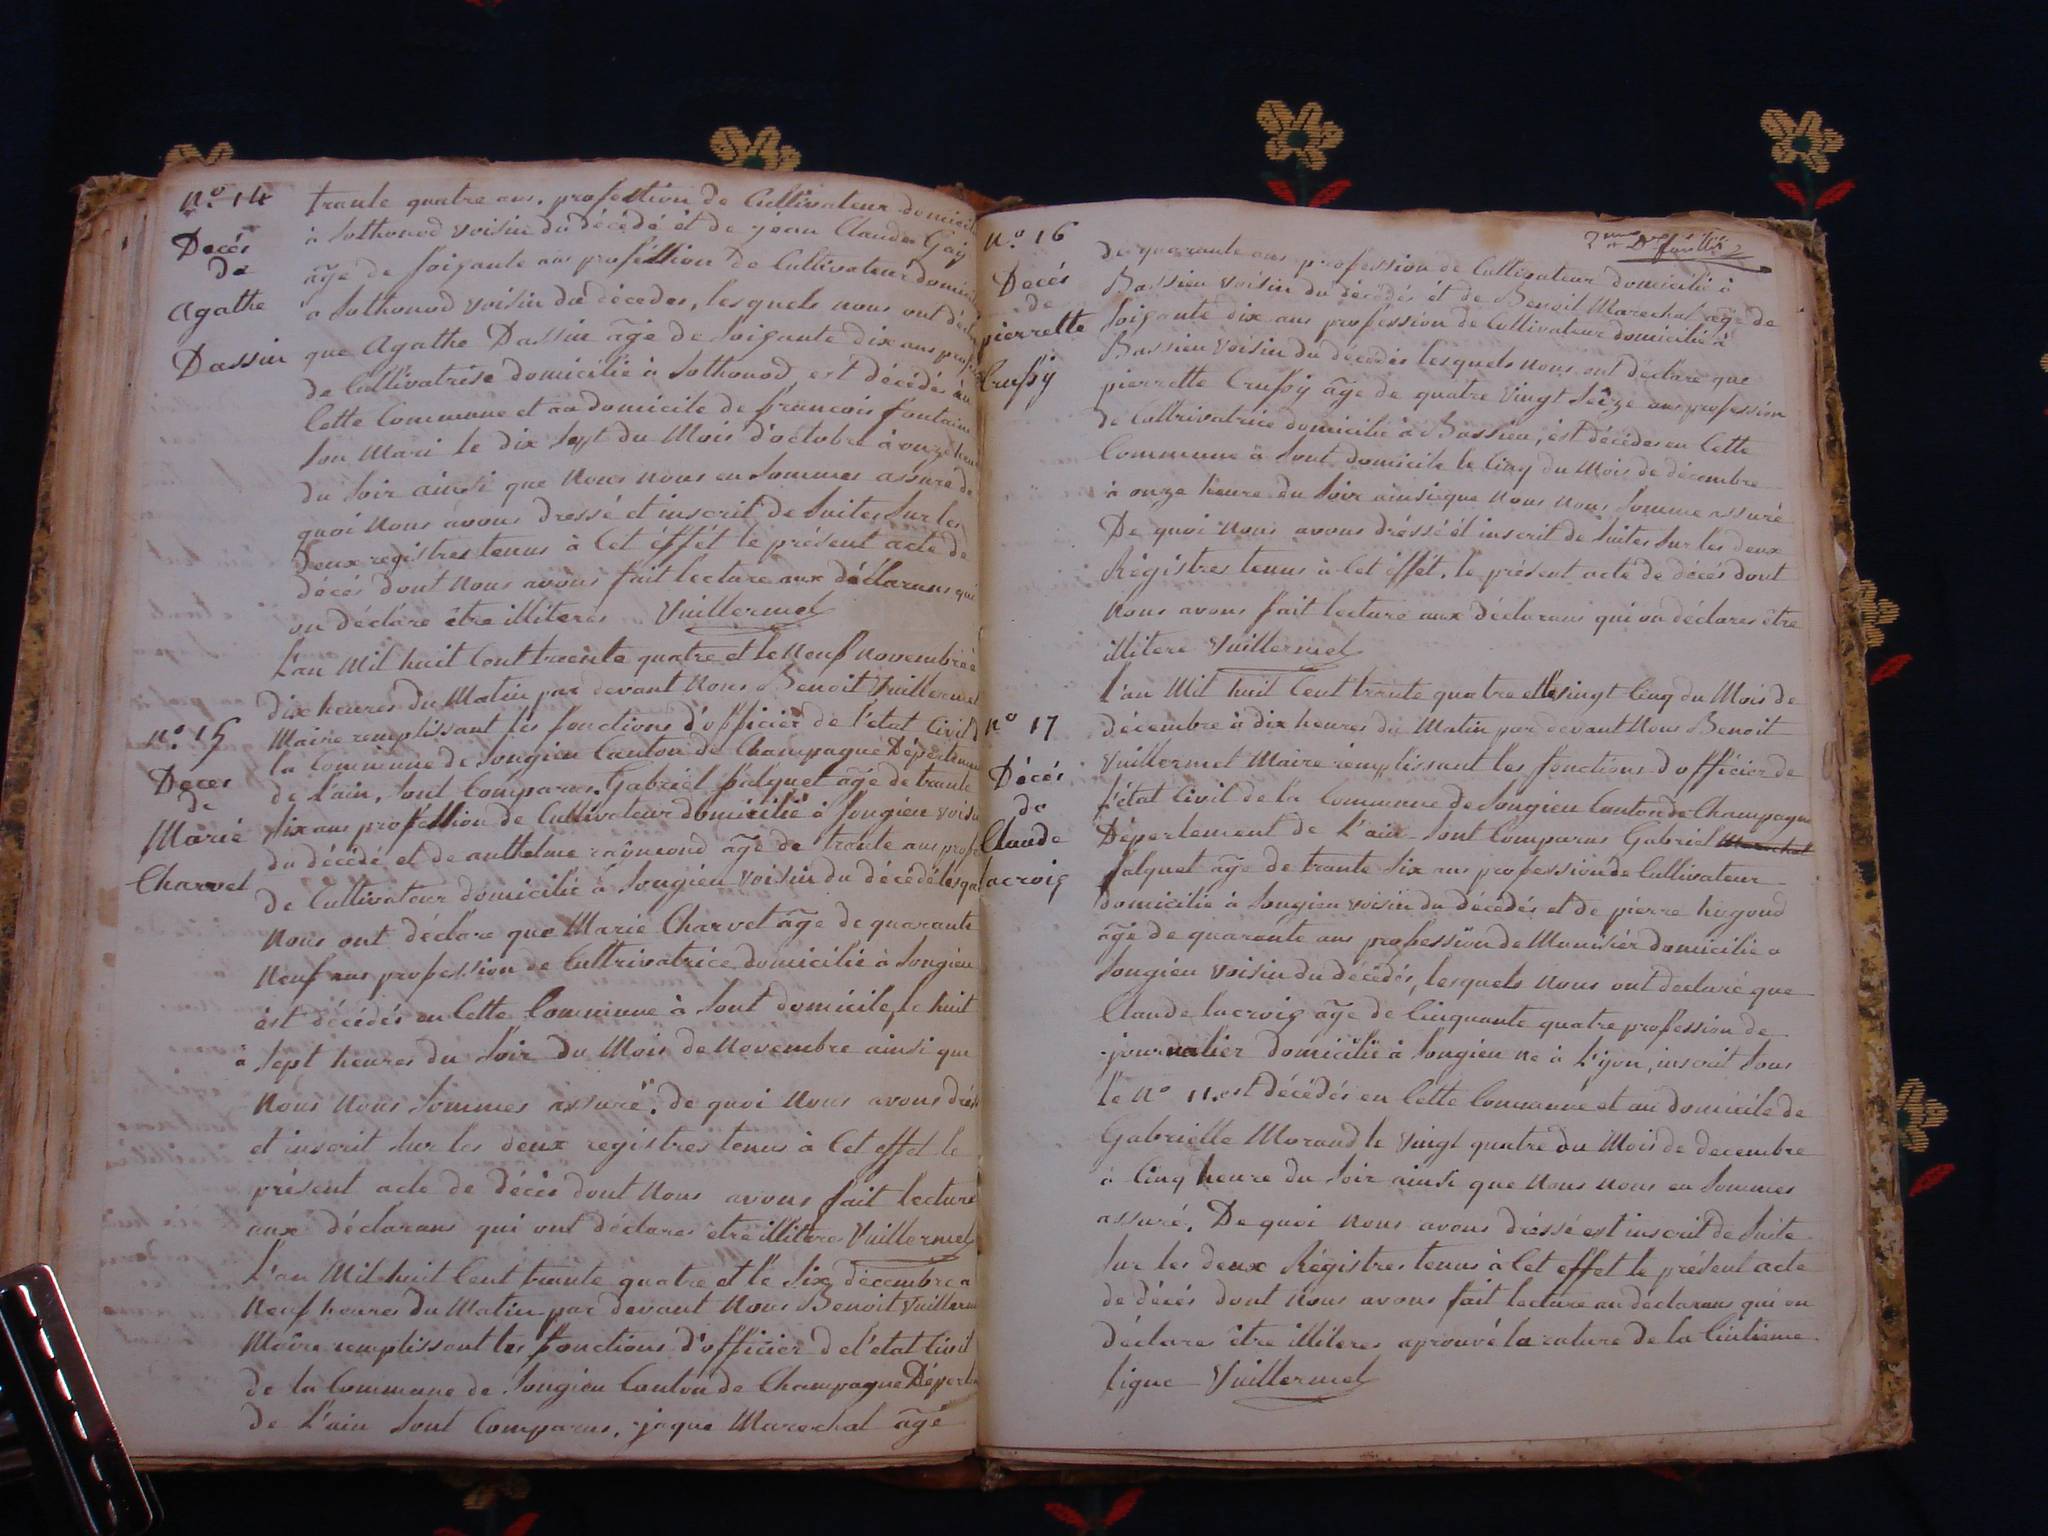 n.º 14
Decés
de
Agathe
Dassin
trante quatre ans, profession de Cultivateur domicilié
à Sothonod voisin du décédé et de jean Claude Gaiy
âge de soigante ans profession de Cultivateur domicil
a Sothonod voisin du décédes, lesquels nous ont décl
que Agathe Dassin âge de Soigante dix ans prof
de Cultivatrise domicilié à Sothonod est décédés en
Cette Commune et au domicile de francois fontaine
Son Mari le dix Sept du Mois d'octobre à onze heur
du Soir ainsi que Nous nous en Sommes assuré de
quoi Nous avons dressé et inscrit de Suites Sur les
Deux registres tenus à Cet éffét le présent acte de
décés dont Nous avons fait lecture aux déclarans qui
on déclare être illiteres Vuillermet
n.º 15
Deces
de
Marie
Charvet
L'an Mil huit Cent traente quatre et le Neuf Novembre à
dix heures du Matin par devant Nous Benoit Vuillermet
Maire remplissant les fonctions d'officier de l'état Civil d
la Commune de Songieu Canton de Champagne Département
de L'ain, Sont Comparus, Gabriel falquet âge de trante
Six ans profession de Cultivateur domicilié à Songieu voisin
du décédé et de anthelme raymond âge de trante ans profe
de Cultivateur domicilié à Songieu voisin du décédé lesquel
Nous ont déclare que Marie Charvet âge de quarante
Neuf ans profession de Cultrivatrice domicilié à Songieu
est décédés en Cette Commune à Sont domicile, le huit
à Sept heures du Soir du Mois de Novembre ainsi que
Nous Nous Sommes assuré. de quoi Nous avons drés
et inscrit Sur les deux registres tenus à Cet effet le
présent acte de décés dont Nous avons fait lecture
aux déclarans qui ont déclares être illitere Vuillermet
L'an Mil huit Cent trante quatre et le Six décembre a
Neuf heures du Matin par devant Nous Benoit Vuillerm
Maire remplissant les fonctions d'officier de l'état Civil
de la Commune de Songieu Canton de Champagne Départe
de L'ain Sont Comparus, jaque Marechal âgé
n.º 16
Decés
de
pierrette
Crussy
de quarante ans profession de Cultivateur domicilié à
Bassieu voisin du décédés et de Benoit Marechal âge de
Soigante dix ans profession de Cultivateur domicilié à
Bassieu voisin du décédés lesquels Nous ont déclaré que
pierrette Crussy âge de quatre vingt Seize ans profession
de Cultrivatrice domicilié à Bassieu, est décédes en Cette
Commune à Sont domicile le Cinq du Mois de décembre
à onze heure du Soir ainsi que Nous Nous Somme assuré
De quoi Nous avons dréssé ét inscrit de Suites Sur les deux
Régistres tenus à Cet éffét, le présent acte de décés dont
Nous avons fait lecture aux déclarans qui on déclares être
illitere Vuillermet
n.º 17
Décés
de
Claude
lacroig
L'an Mil huit Cent trante quatre et le vingt Cinq du Mois de
décembre à dix heures du Matin par devant Nous Benoit
Vuillermet Maire remplissant les fonctions d'officier de
l'état Civil de la Commune de Songieu Canton de Champagne
Département de L'ain Sont Comparus Gabriel Marechal
falquet âge de trante Six ans profession de Cultivateur
domicilié à Songieu voisin du décédés et de pierre hugond
âge de quarante ans profession de Munisier domicilié a
Songieu voisin du décédés, lesquels Nous ont declaré que
Claude lacroig âge de Cinquante quatre profession de
journalier domicilié à Songieu ne à L'yon, inscrit Sous
le Nº 11. est décédés en Cette Commune et au domicile de
Gabrielle Morand le vingt quatre du Mois de decembre
à Cinq heure du Soir ainsi que Nous nous en Sommes
assuré. De quoi Nous avons dréssé est inscrit de Suite
Sur les deux Régistres tenus à Cet effet le présent acte
de décés dont Nous avons fait lecture au déclarans qui on
déclares être illiteres aprouvé la rature de la Cintieme
ligne Vuillermet